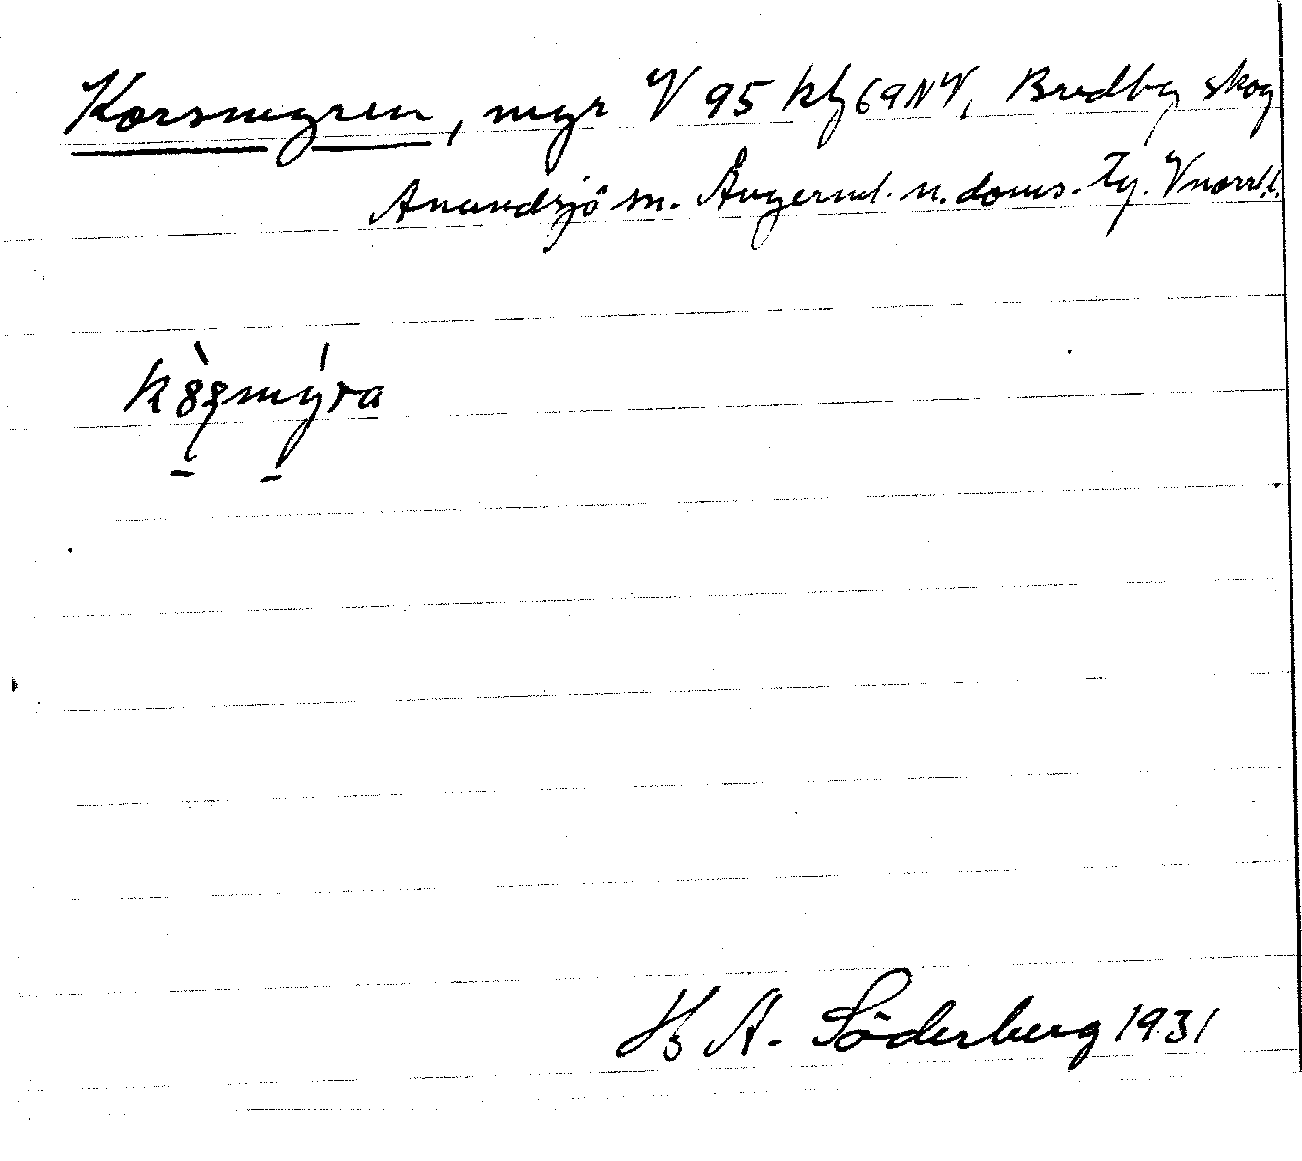 Korsmyren, myr V 95 kbl 69 NV, Bredby skog
Anundsjö sn. Ångerml. n. doms. Tg. Vnorrl. l.
Hj A. Söderberg 1931